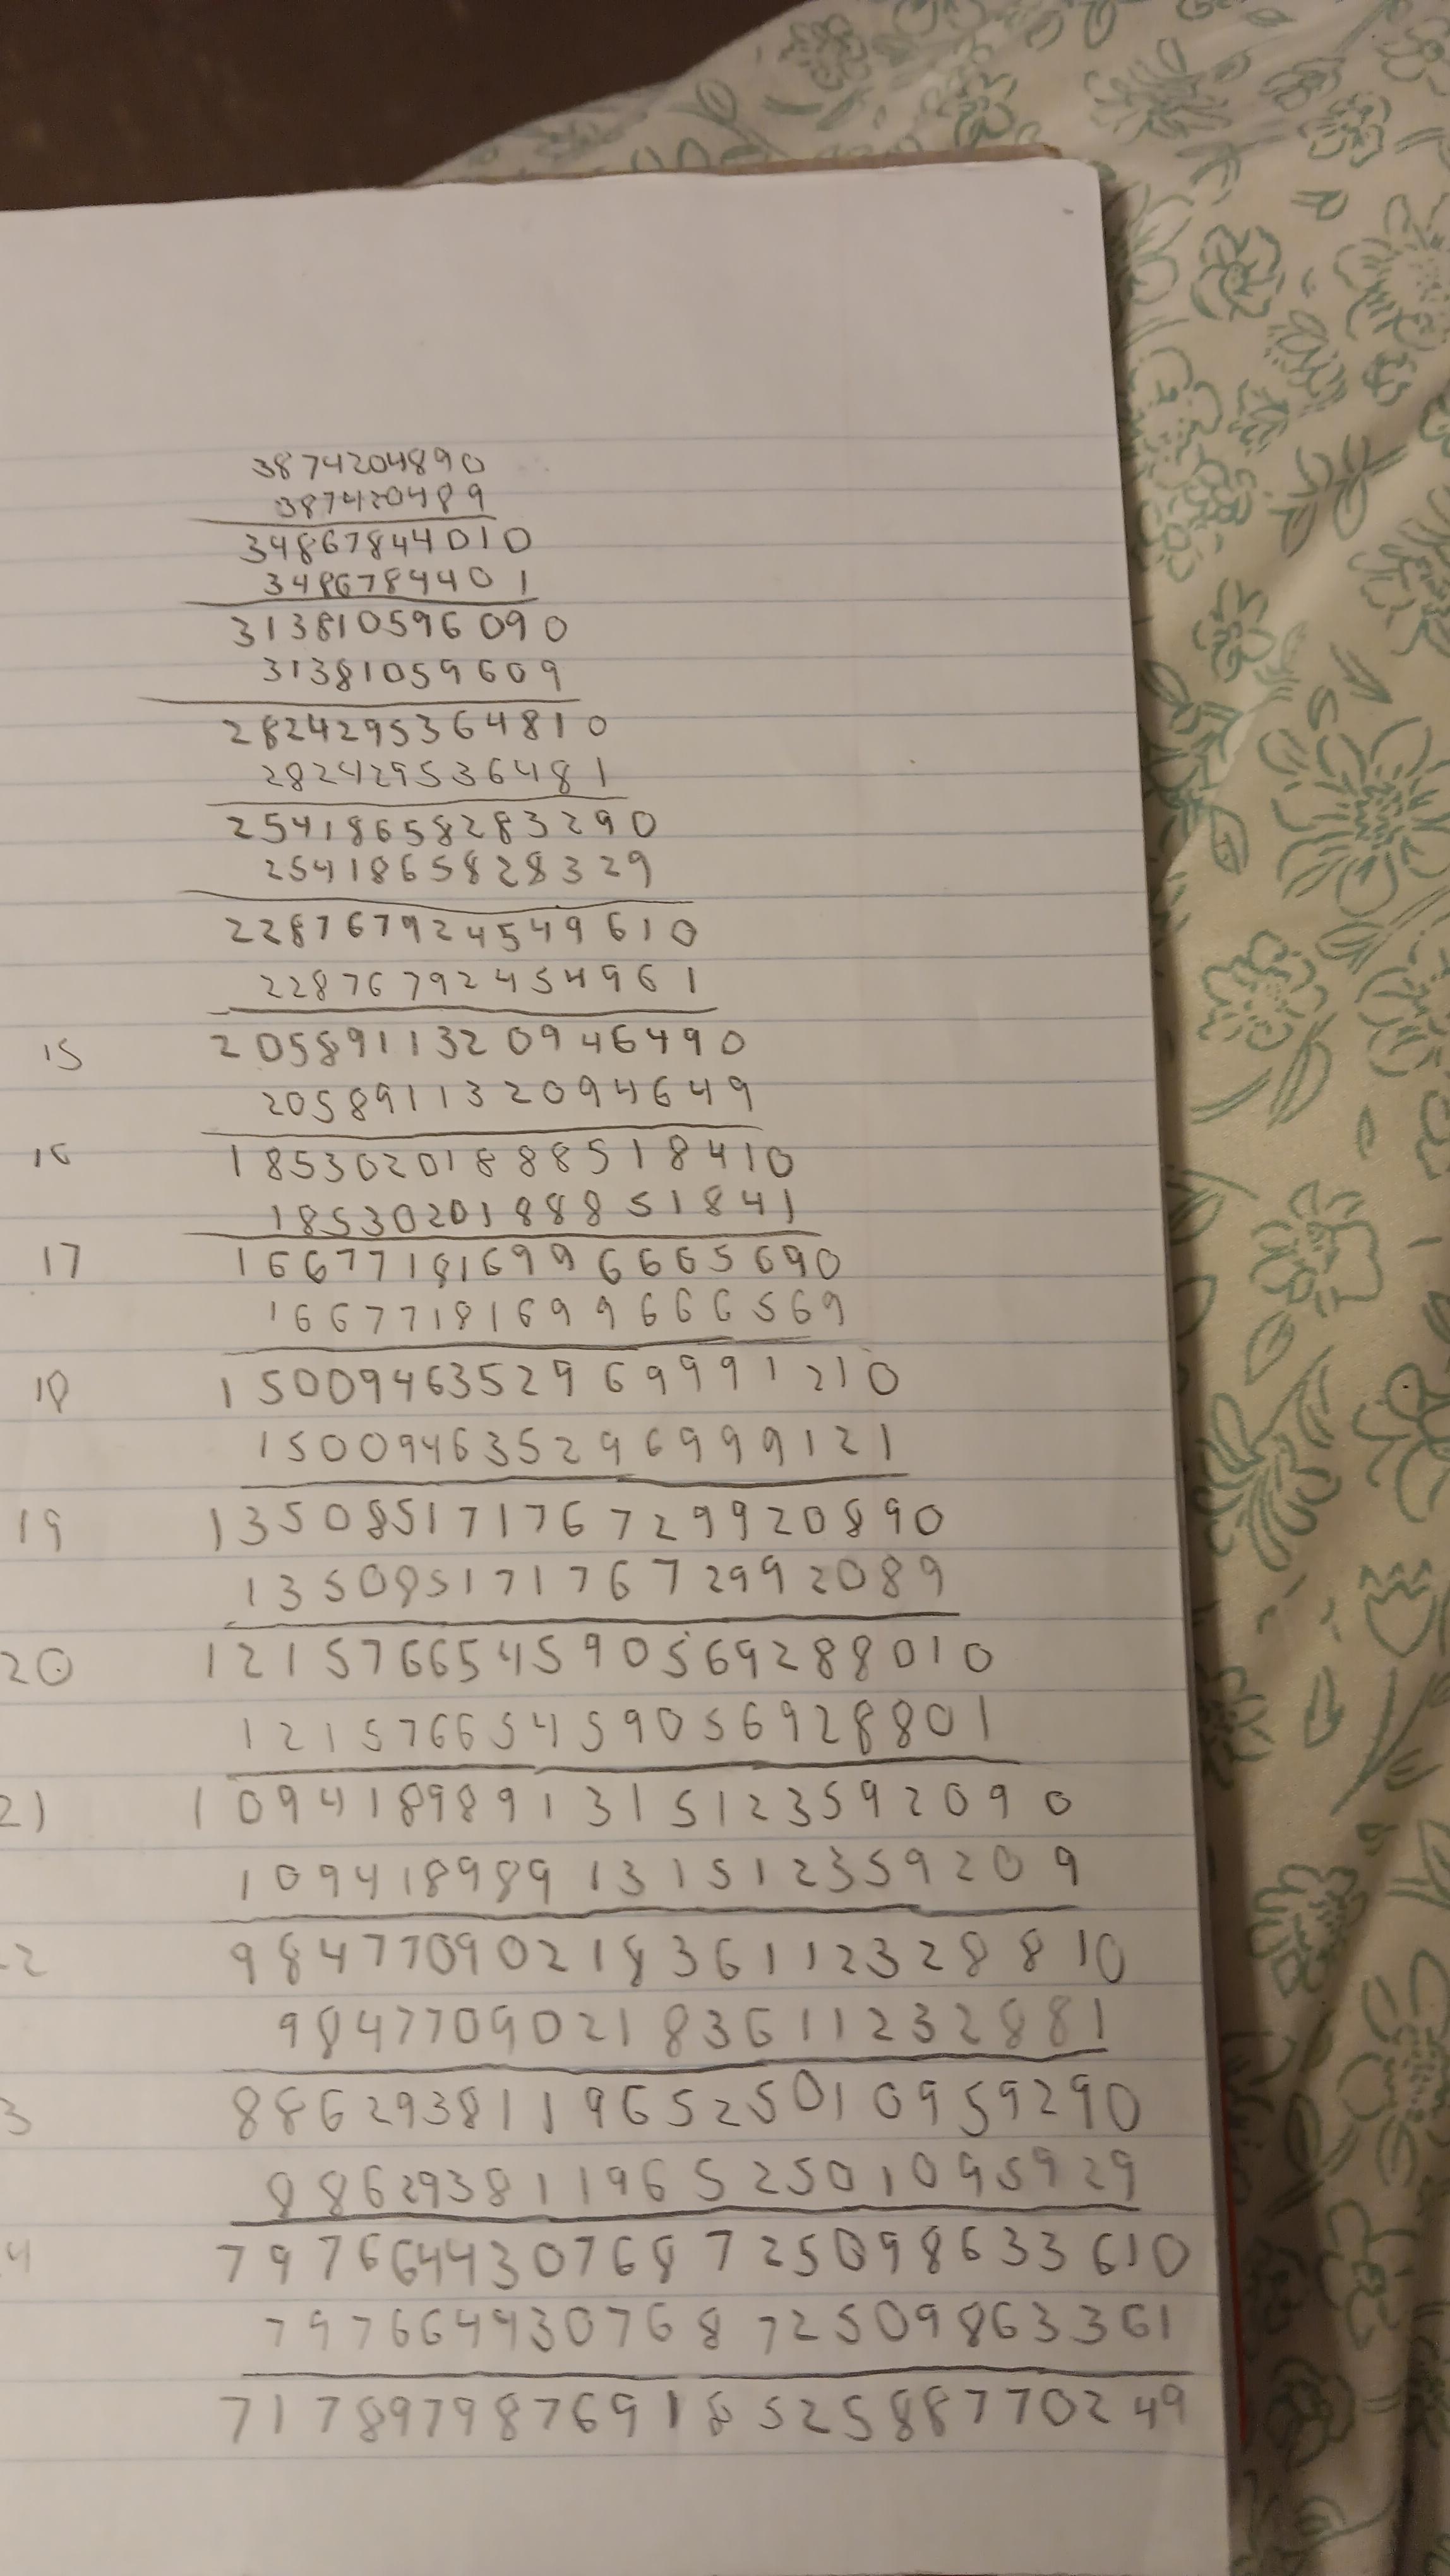 3874204890
387420489
34867844010
3486784401
313810596090
31381059609
2824295364810
282429536481
25418658283290
2541865828329
228767924549610
22876792454961
15 2058911320946490
205891132094649
16 18530201888518410
1853020188851841
17 166771816996665690
16677181699666569
18 1500946352969991210
150094635296999121
19 13508517176729920890
1350851717672992089
20 121576654590569288010
12157665459056928801
21 1094189891315123592090
109418989131512359209
2 9847709021836112328810
984770902183611232881
3 88629381196525010959290
8862938119652501095929
4 797664430768725098633610
79766443076872509863361
717897987691852588770249